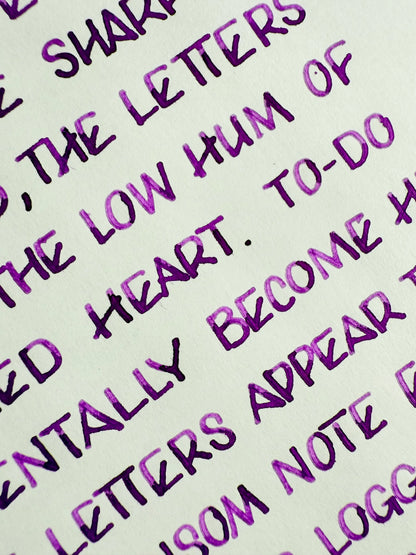 E SHARP
, THE LETTERS
THE LOW HUM OF
ED HEART. TO-DO
ENTALLY BECOME H
LETTERS APPEAR
SOM NOTE
LOGG